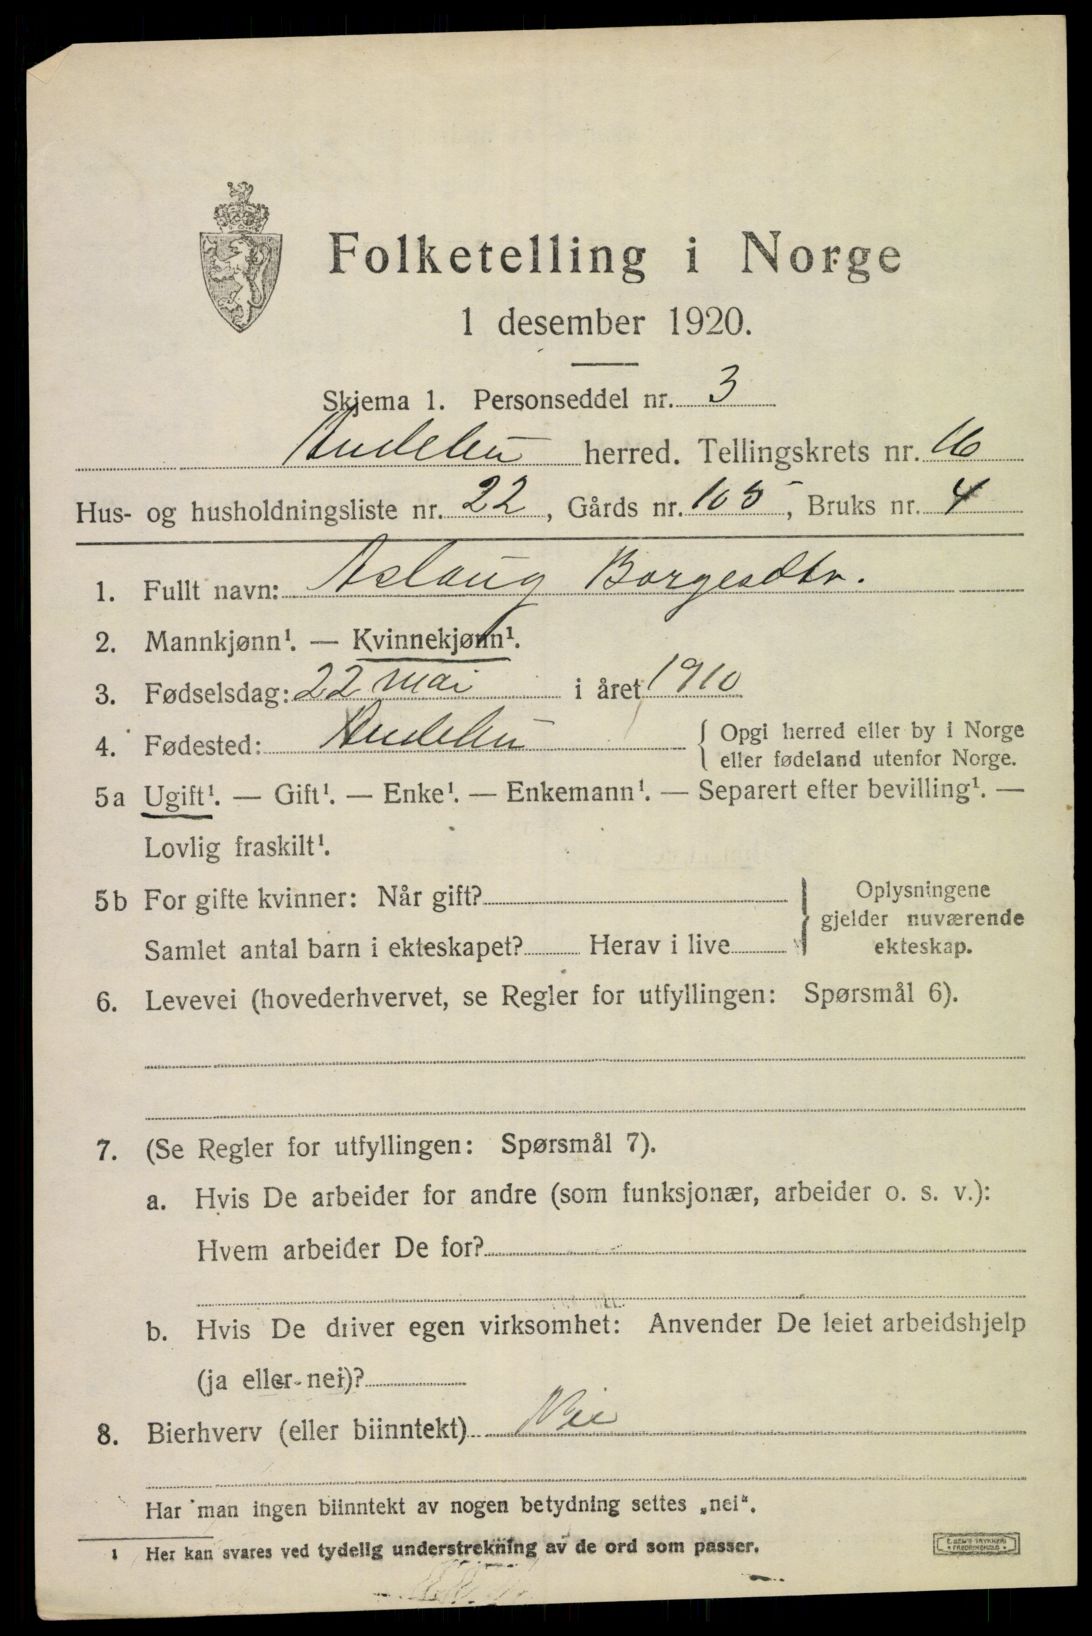 Folketelling i Norge
1 desember 1920.
Skjema 1. Personseddel nr. 3
Andebu herred. Tellingskrets nr. 16
Hus- og husholdningsliste nr. 22, Gårds nr. 105, Bruks nr. 4
1. Fullt navn: Aslaug Borgesdtr.
2. Mannkjønn¹. — Kvinnekjønn¹.
3. Fødselsdag: 22 mai i året 1910
4. Fødested: Andebu { Opgi herred eller by i Norge
eller fødeland utenfor Norge.
5a Ugift¹. — Gift¹. — Enke¹. — Enkemann¹. — Separert efter bevilling¹. —
Lovlig fraskilt¹.
5b For gifte kvinner: Når gift?
Samlet antal barn i ekteskapet? Herav i live
} Oplysningene
gjelder nuværende
ekteskap.
6. Levevei (hovederhvervet, se Regler for utfyllingen: Spørsmål 6).
7. (Se Regler for utfyllingen: Spørsmål 7).
a. Hvis De arbeider for andre (som funksjonær, arbeider o. s. v.):
Hvem arbeider De for?
b. Hvis De driver egen virksomhet: Anvender De leiet arbeidshjelp
(ja eller nei)?
8. Bierhverv (eller biinntekt) Nei
Har man ingen biinntekt av nogen betydning settes „nei“.
1 Her kan svares ved tydelig understrekning av de ord som passer.